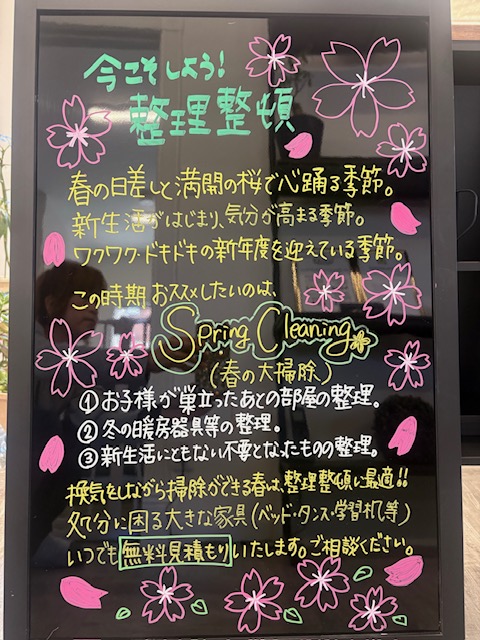 今こそしよう!
整理整頓
春の日差しと満開の桜で心踊る季節。
新生活がはじまり、気分が高まる季節。
ワクワク・ドキドキの新年度を迎えている季節。
この時期おススメしたいのは、
Spring Cleaning
(春の大掃除)
①お子様が巣立ったあとの部屋の整理。
②冬の暖房器具等の整理。
③新生活にともない不要となったものの整理。
換気をしながら掃除ができる春は、整理整頓に最適!!
処分に困る大きな家具(ベッド・タンス・学習机等)
いつでも無料見積もりいたします。ご相談ください。